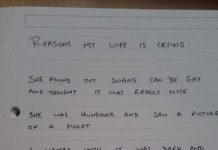 REASONS MY WIFE IS CRYING:
SHE FOUND OUT SWANS CAN BE GAY
AND THOUGHT IT WAS REALLY NICE
SHE WAS HUNGOVER AND SAW A PICTURE
OF A PIGLET
I WAITED UNTIL IT WAS DARK AND